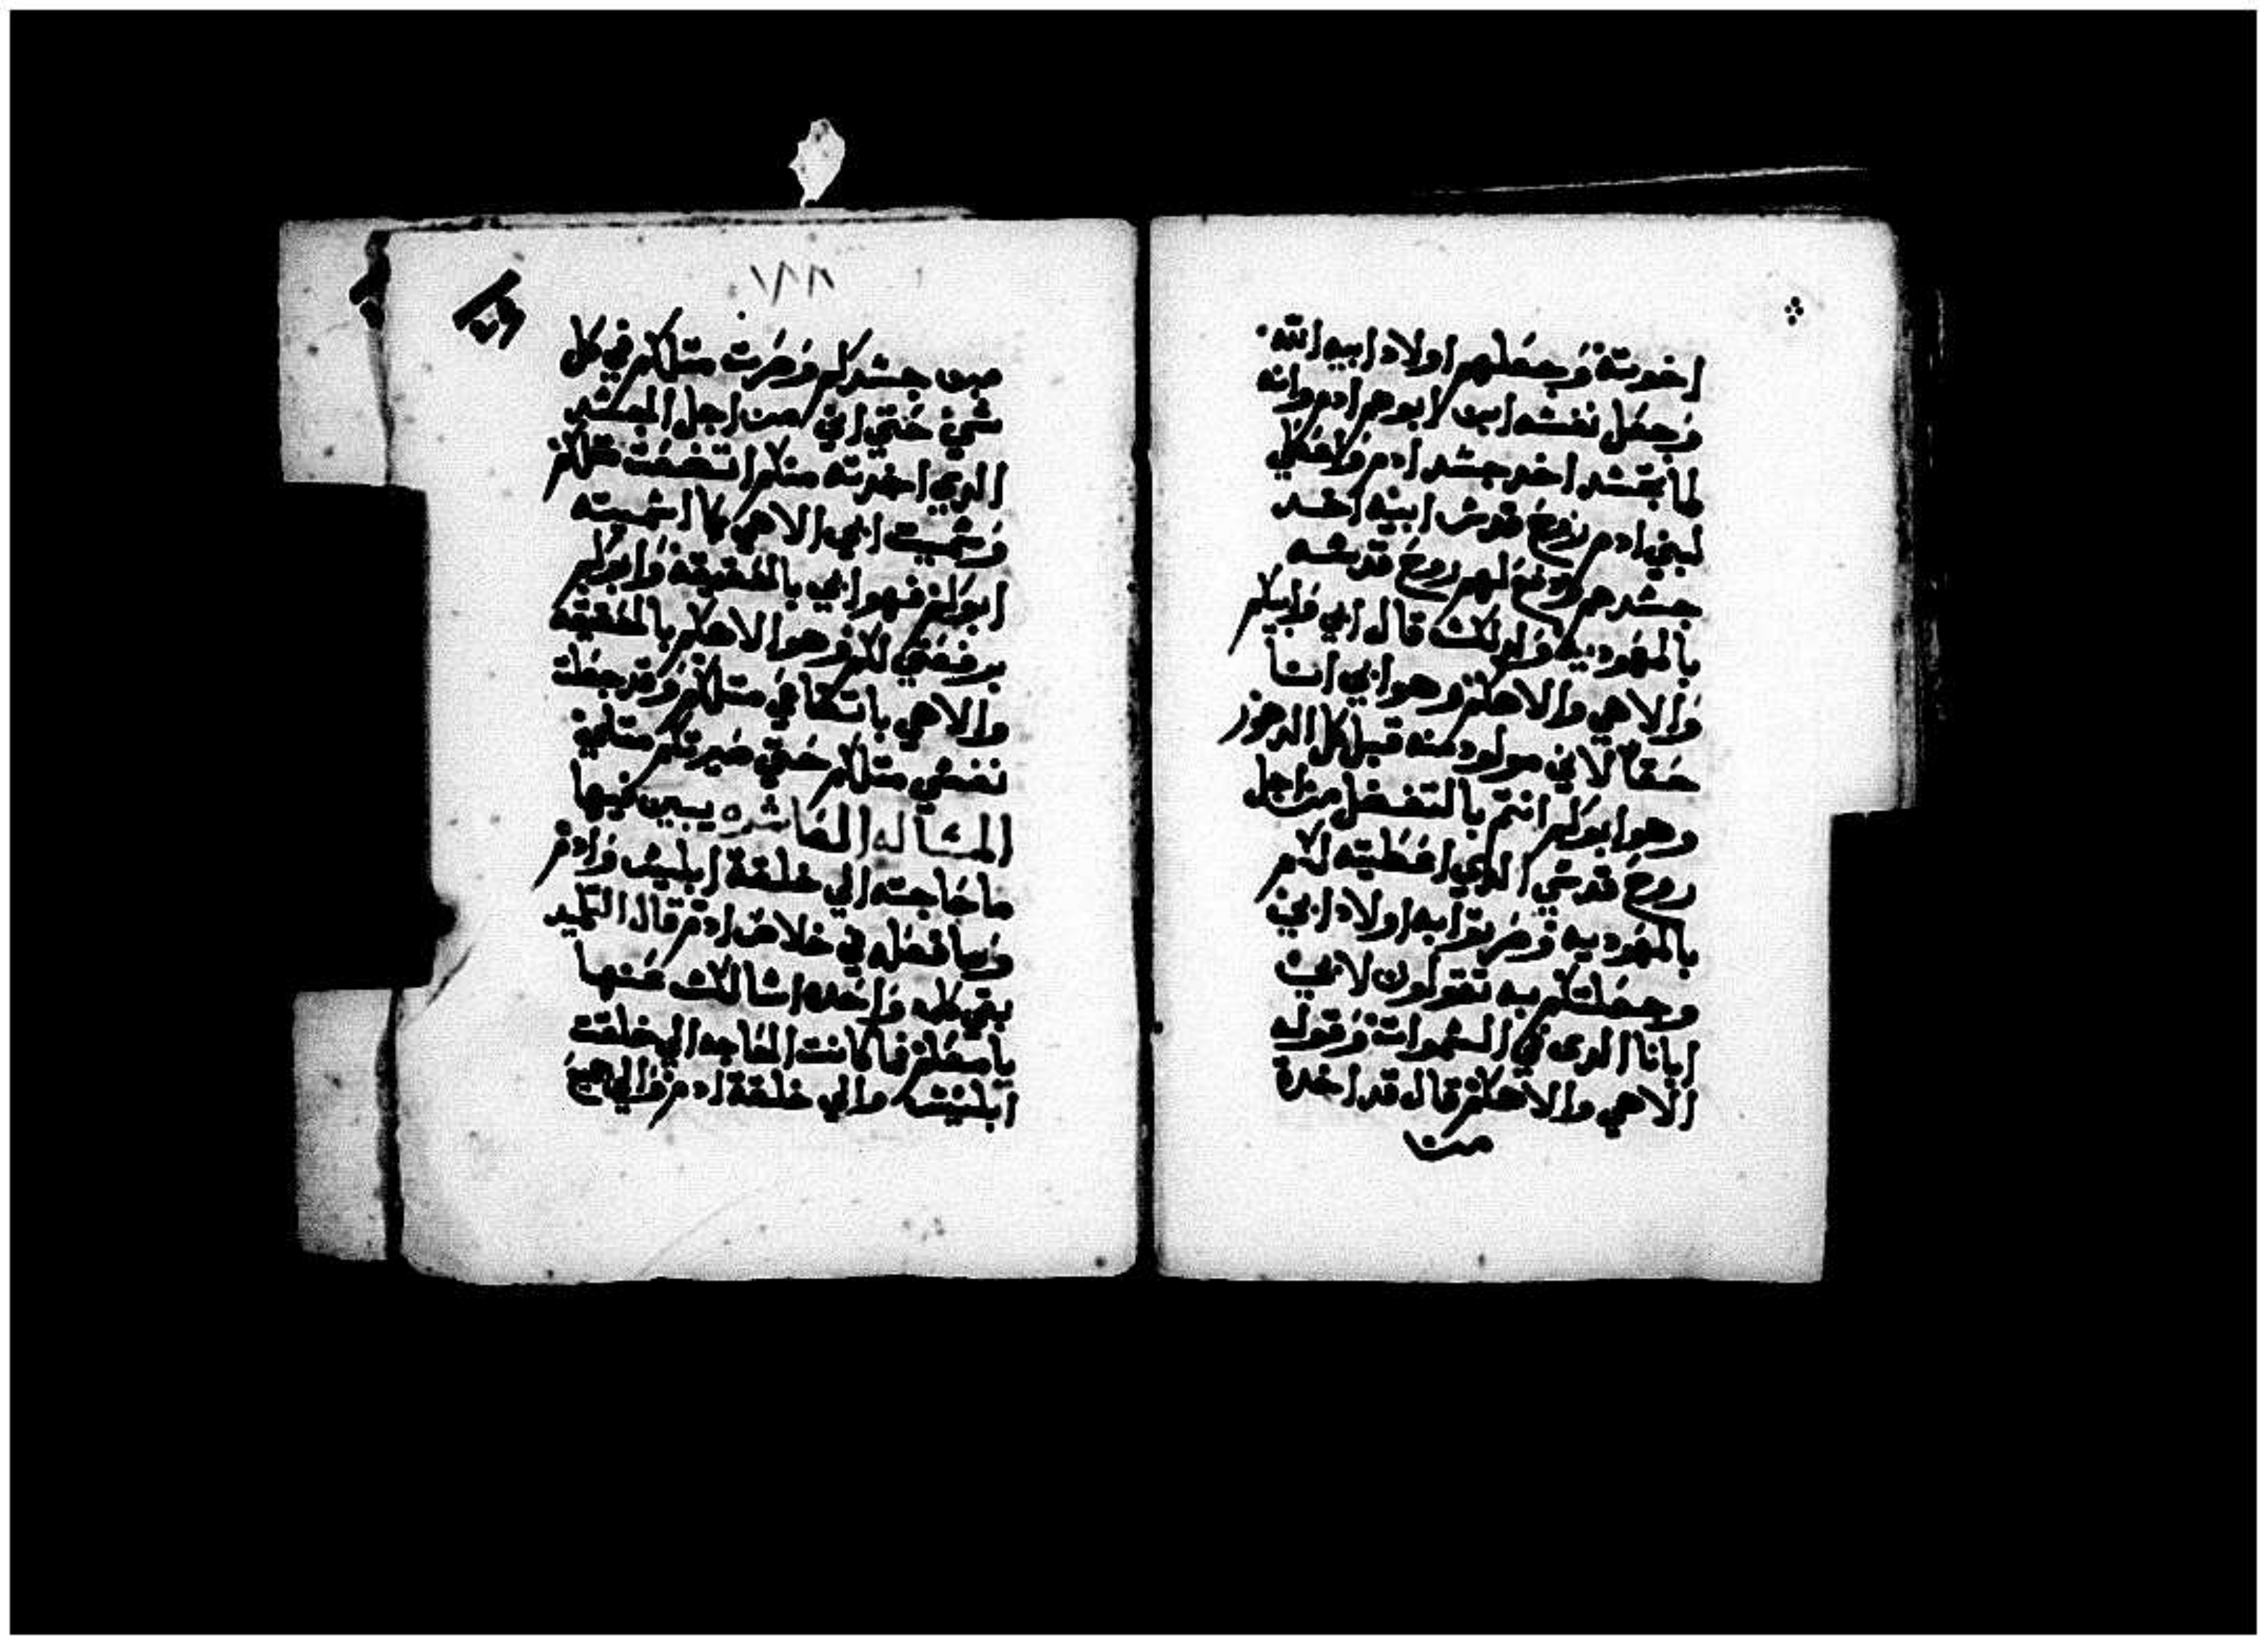 اخوته وجعلهم اولاد ابيه الله
وجعل نفسه ابن لابوهم ادم وانه
لما تجسد اخد جسد ادم ولاعطي
لبني ادم روح قدس ابيه اخد
جسدهم ودفع لهم روح قدسه
بالمعوديه ولدلك قال ابي وابيكم
والاهي والاهكم وهو ابي انا
حقا لاني مولود منه قبل كل الدهور
وهو ابوكم انتم بالتفضل من اجل
روح قدسي الدي اعطيته لكم
بالمعوديه وصرتوا به اولاد ابي
وجعلتكم به تقولون لابي
ابانا الدى في السموات وقوله
الاهي والاهكم قال قد اخدة
من
١٢٢
من جسدكم وصرت متلكم في كل
شي حتي اني من اجل الجسد
الدي اخدته منكم اتضعت متلكم
وسميت ابي الاهي كما اسميته
ابوكم فهو ابي بالحقيقه وابوكم
برفعتي لكم وهو الاهكم بالحقيقه
والاهي باتضاعي متلكم وقد جعلت
نفسي متلكم حتي صيرتكم متلي
المساله العاشره يبين فيها
ما حاجته الي خلقة ابليس وادم
وما فعله في خلاص ادم قال التلميد
بقي كلمه واحده اسالك عنها
يامعلم فما كانت الحاجه الي خلقت
ابليس والي خلقة ادم والي